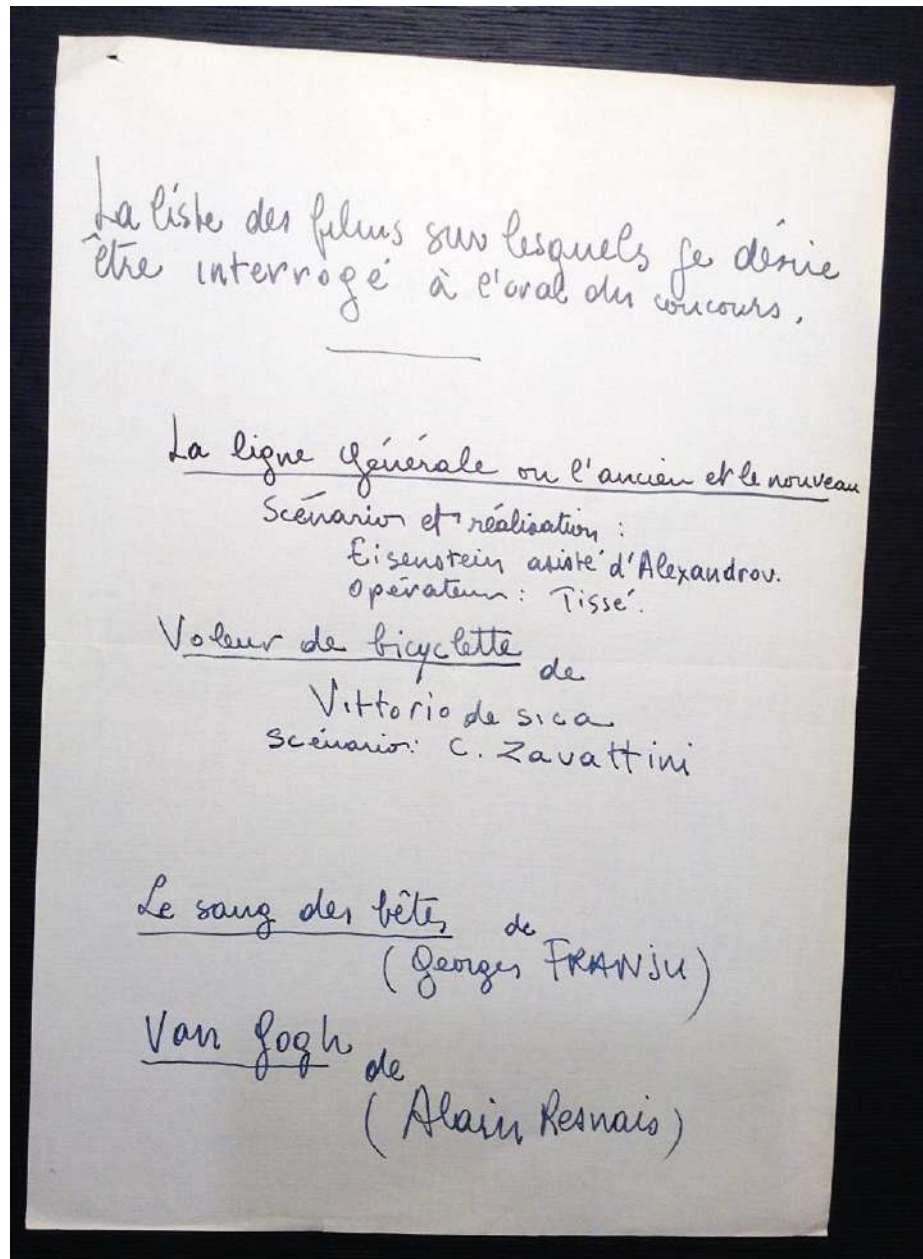 La liste des films sur lesquels je désire
être interrogé à l'oral du concours.
La ligne générale ou l'ancien et le nouveau
Scénario et réalisation :
Eisenstein asisté d'Alexandrov.
opérateur : Tissé.
Voleur de bicyclette de
Vittorio de sica
scénario: C. Zavattini
Le sang des bêtes de
(Georges FRANJU)
Van Gogh de
(Alain Resnais)